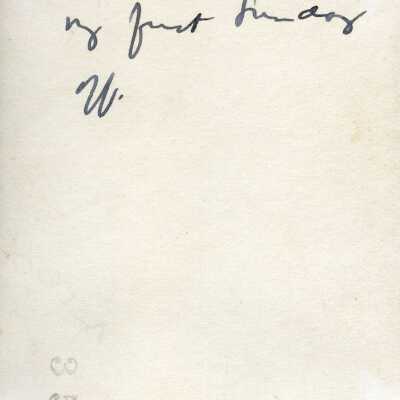 my first Sunday
W.